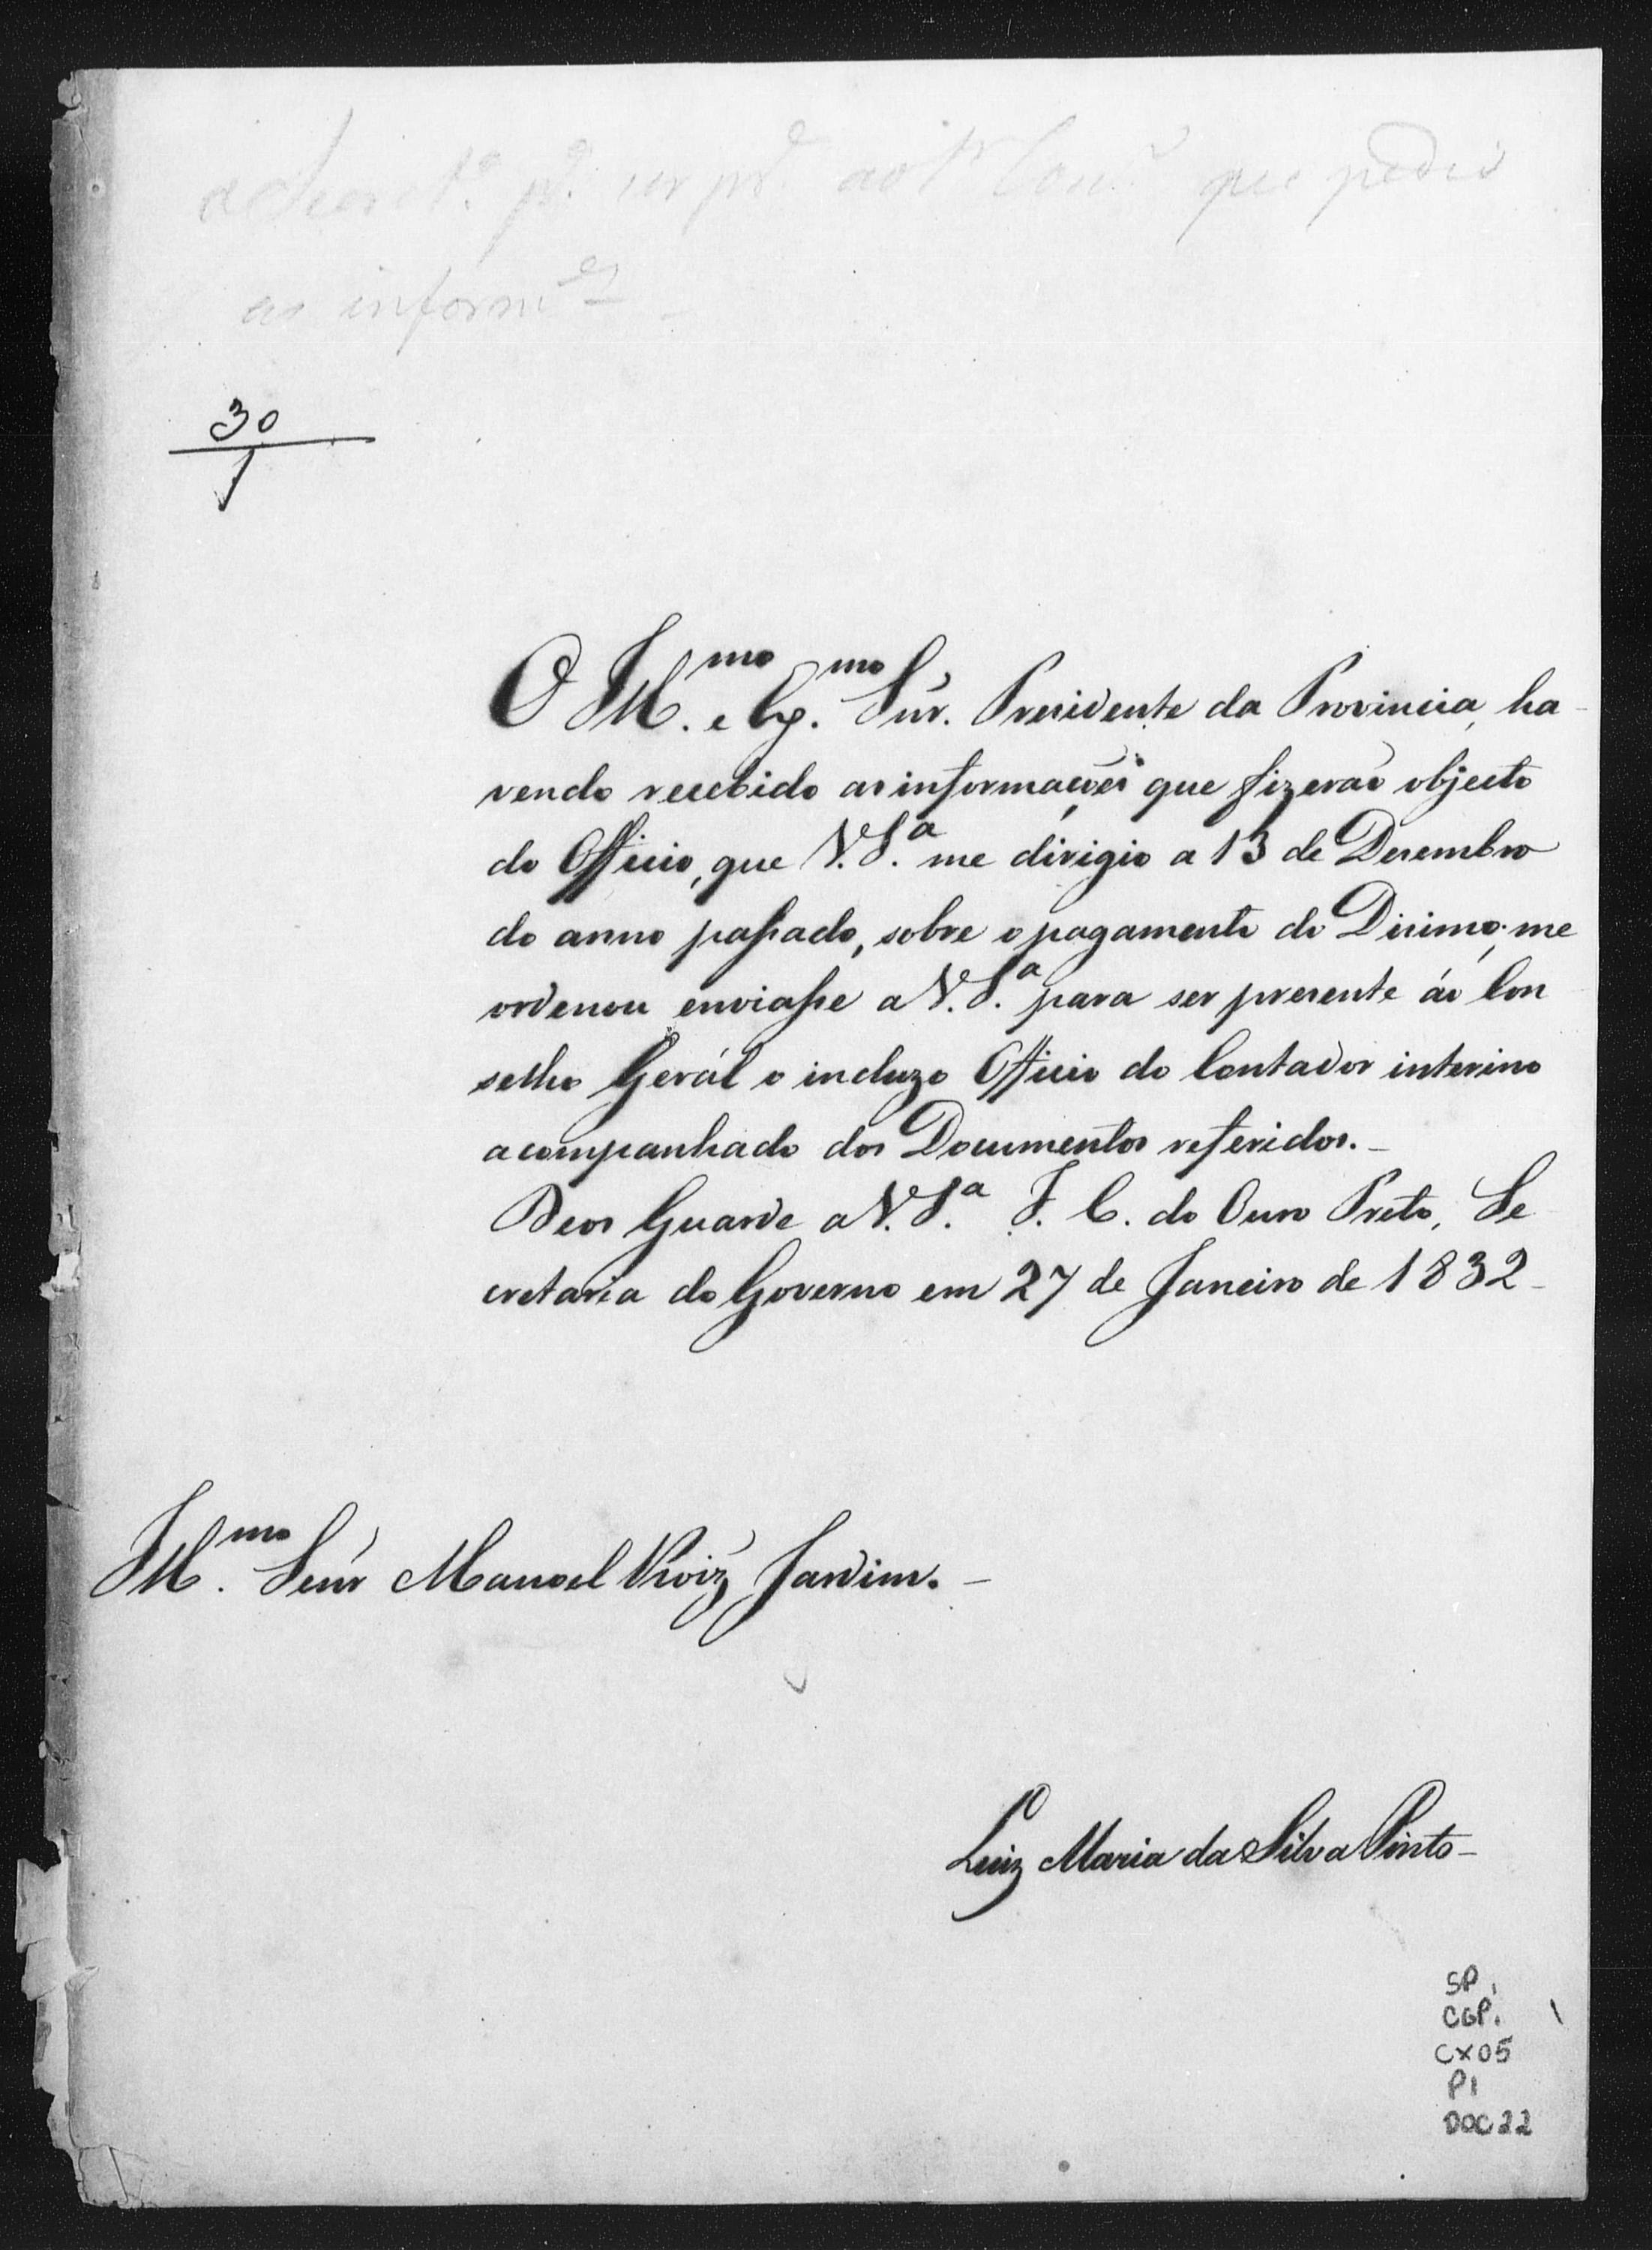 que pedio
as inform.es
30
1
O Ill.mo e Ex.mo Snr. Presidente da Provincia, ha-
vendo recebido as informações que fizerão objecto
do Officio, que V. S.a me dirigio a 13 de Desembro
do anno passado, sobre o pagamento do Disimo; me
ordenou enviasse a V. S.a para ser presente áo Con
selho Gerál o incluzo Officio do Contador interino
acompanhado dos Documentos referidos. -
Deos Guarde a V. S.a I. C. do Ouro Preto, Se
cretaria do Governo em 27 de Janeiro de 1832 -
Ill.mo Senr Manoel Roiz Jardim. -
Luiz Maria da Silva Pinto -
SP,
CGP.
CX05
P1
DOC 22